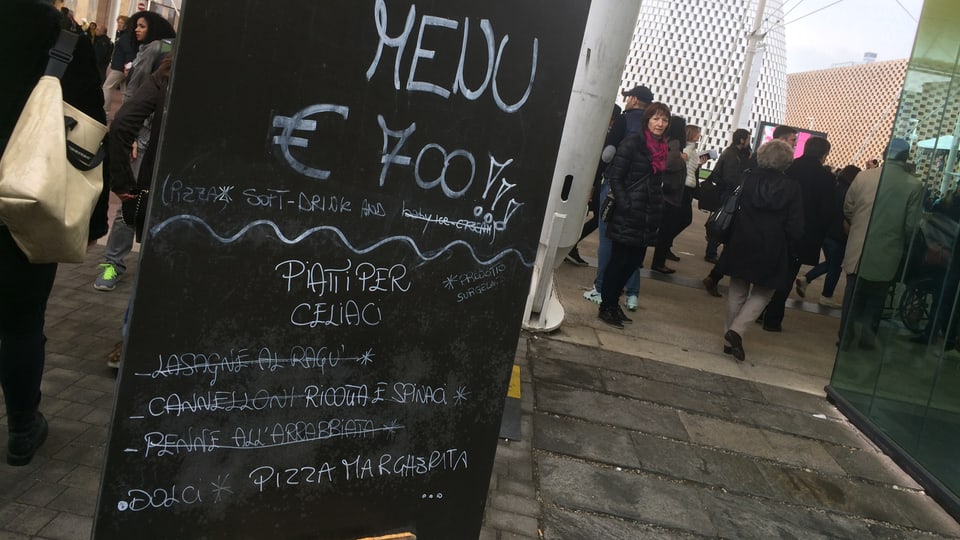 MENU
€ 7,00!!
(PIZZA* SOFT-DRINK AND baby ice-cream)
PIATTI PER
CELIACI
*PRODOTTO
SURGELATO
- LASAGNE AL RAGU' *
- CANNELLONI RICOTTA E SPINACI *
- PENNE ALL'ARRABBIATA *
PIZZA MARGHERITA
• DOLCI *
...